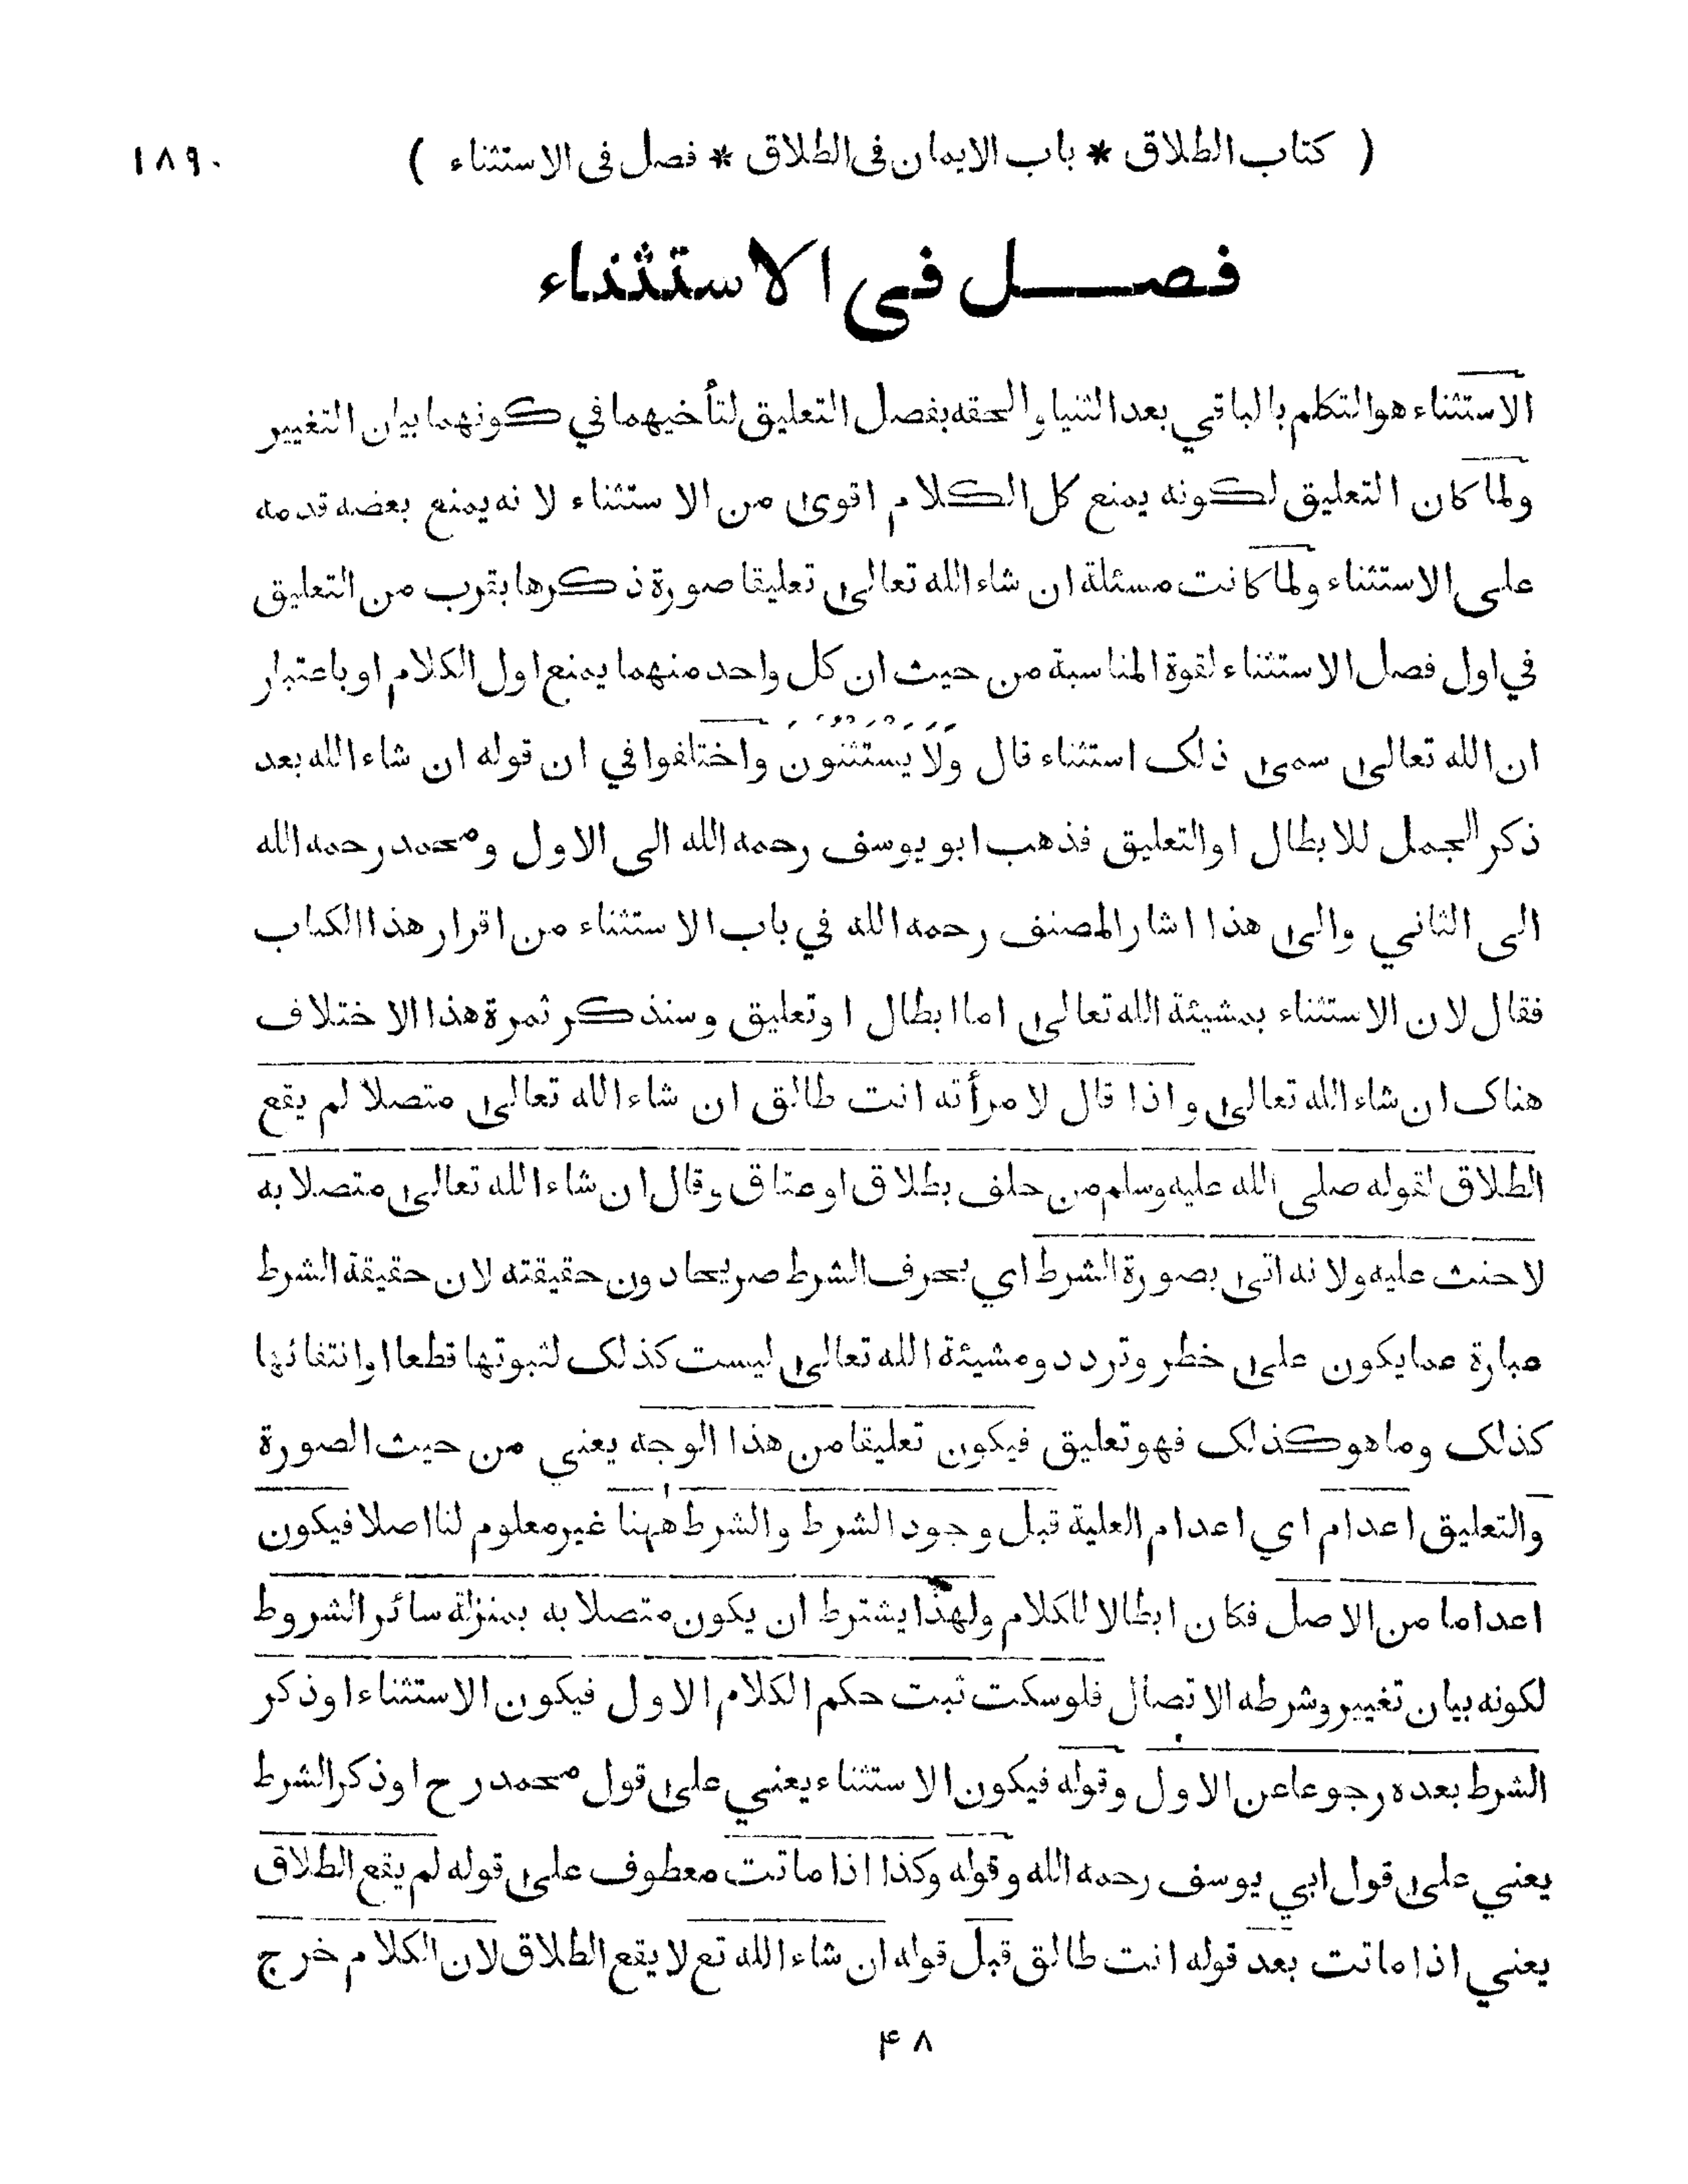 ( كتاب الطلاق * باب الايمان فى الطلاق * فصل فى الاستثناء ) ١٨٩٠
فصل فى الاستثناء
الاستثناء هو التكلم بالباقي بعد الثنيا والحقه بفصل التعليق لتأخيهما في كونهما بيان التغيير
ولما كان التعليق لكونه يمنع كل الكلام اقوى من الاستثناء لانه يمنع بعضه قدمه
على الاستثناء ولما كانت مسئلة ان شاء الله تعالى تعليقا صورة ذكرها بقرب من التعليق
في اول فصل الاستثناء لقوة المناسبة من حيث ان كل واحد منهما يمنع اول الكلام او باعتبار
ان الله تعالى سمى ذلك استثناء قال وَلَا يَسْتَثْنُونَ واختلفوا في ان قوله ان شاء الله بعد
ذكر الجمل للابطال او التعليق فذهب ابو يوسف رحمه الله الى الاول ومحمد رحمه الله
الى الثاني والى هذا اشار المصنف رحمه الله في باب الاستثناء من اقرار هذا الكتاب
فقال لان الاستثناء بمشيئة الله تعالى اما ابطال او تعليق وسنذكر ثمرة هذا الاختلاف
هناك ان شاء الله تعالى واذا قال لامرأته انت طالق ان شاء الله تعالى متصلا لم يقع
الطلاق لقوله صلى الله عليه وسلم من حلف بطلاق او عتاق وقال ان شاء الله تعالى متصلا به
لا حنث عليه ولانه اتى بصورة الشرط اي بحرف الشرط صريحا دون حقيقته لان حقيقة الشرط
عبارة عما يكون على خطر وتردد ومشيئة الله تعالى ليست كذلك لثبوتها قطعا او انتفائها
كذلك وما هو كذلك فهو تعليق فيكون تعليقا من هذا الوجه يعني من حيث الصورة
والتعليق اعدام اي اعدام العلية قبل وجود الشرط والشرط ههنا غير معلوم لنا اصلا فيكون
اعداما من الاصل فكان ابطالا للكلام ولهذا يشترط ان يكون متصلا به بمنزلة سائر الشروط
لكونه بيان تغيير وشرطه الاتصال فلو سكت ثبت حكم الكلام الاول فيكون الاستثناء او ذكر
الشرط بعده رجوعا عن الاول وقوله فيكون الاستثناء يعني على قول محمد رح او ذكر الشرط
يعني على قول ابي يوسف رحمه الله وقوله وكذا اذا ماتت معطوف على قوله لم يقع الطلاق
يعني اذا ماتت بعد قوله انت طالق قبل قوله ان شاء الله تع لا يقع الطلاق لان الكلام خرج
۴۸